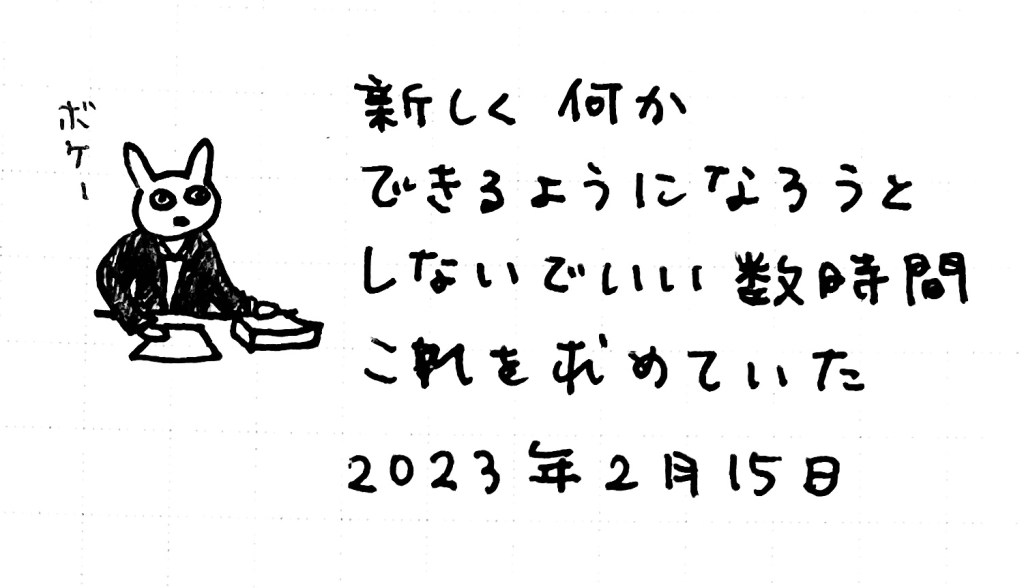 ボケー
新しく 何か
できるようになろうと
しないでいい 数時間
これを求めていた
2023年2月15日